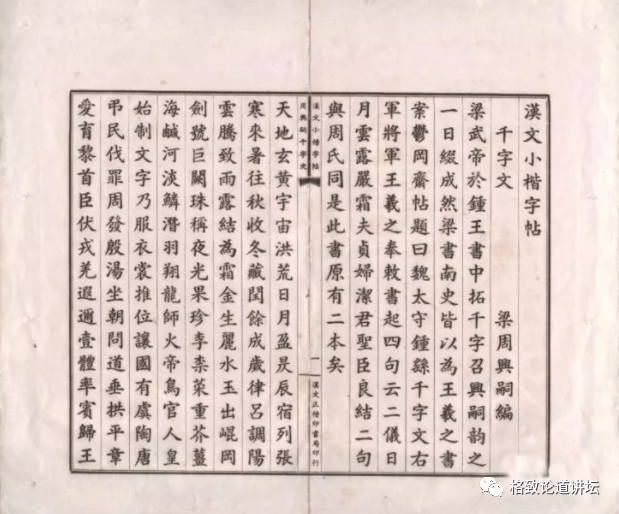 漢文小楷字帖
千字文 梁周興嗣編
梁武帝於鍾王書中拓千字召興嗣韵之
一日綴成然梁書南史皆以為王羲之書
案鬱岡齋帖題曰魏太守鍾繇千字文右
軍將軍王羲之奉敕書起四句云二儀日
月雲露嚴霜夫貞婦潔君聖臣良結二句
與周氏同是此書原有二本矣
漢文小楷字帖
周興嗣千字文
一
漢文正楷印書局印行
天地玄黃宇宙洪荒日月盈昃辰宿列張
寒來暑往秋收冬藏閏餘成歲律呂調陽
雲騰致雨露結為霜金生麗水玉出崐岡
劍號巨闕珠稱夜光果珍李柰菜重芥薑
海鹹河淡鱗潛羽翔龍師火帝鳥官人皇
始制文字乃服衣裳推位讓國有虞陶唐
弔民伐罪周發殷湯坐朝問道垂拱平章
愛育黎首臣伏戎羌遐邇壹體率賓歸王
格致论道讲坛